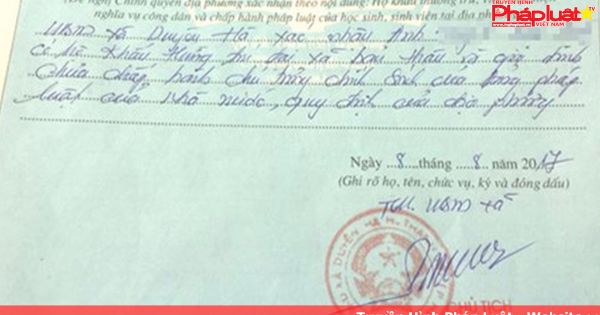 TRUYỀN HÌNH
Pháp luật
nghị Chính quyền địa phương xác nhận theo nội dung: Hộ khẩu thường trú,
nghĩa vụ công dân và chấp hành pháp luật của học sinh, sinh viên tại địa
UBND xã Duyên Hà xác nhận
có hộ khẩu thường trú tại xã bản thân và gia đình
chưa chấp hành chủ trương chính sách của pháp
luật của Nhà nước, quy định của địa phương
Ngày 8 tháng 8 năm 2017
(Ghi rõ họ, tên, chức vụ, ký và đóng dấu)
TM. UBND xã
XÃ DUYÊN HÀ
CHỦ TỊCH